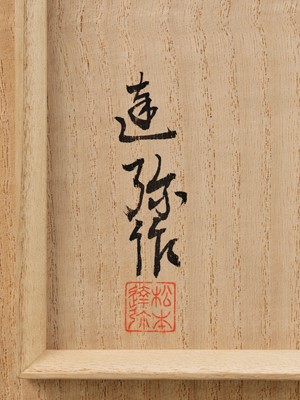 達弥作
松本
達弥